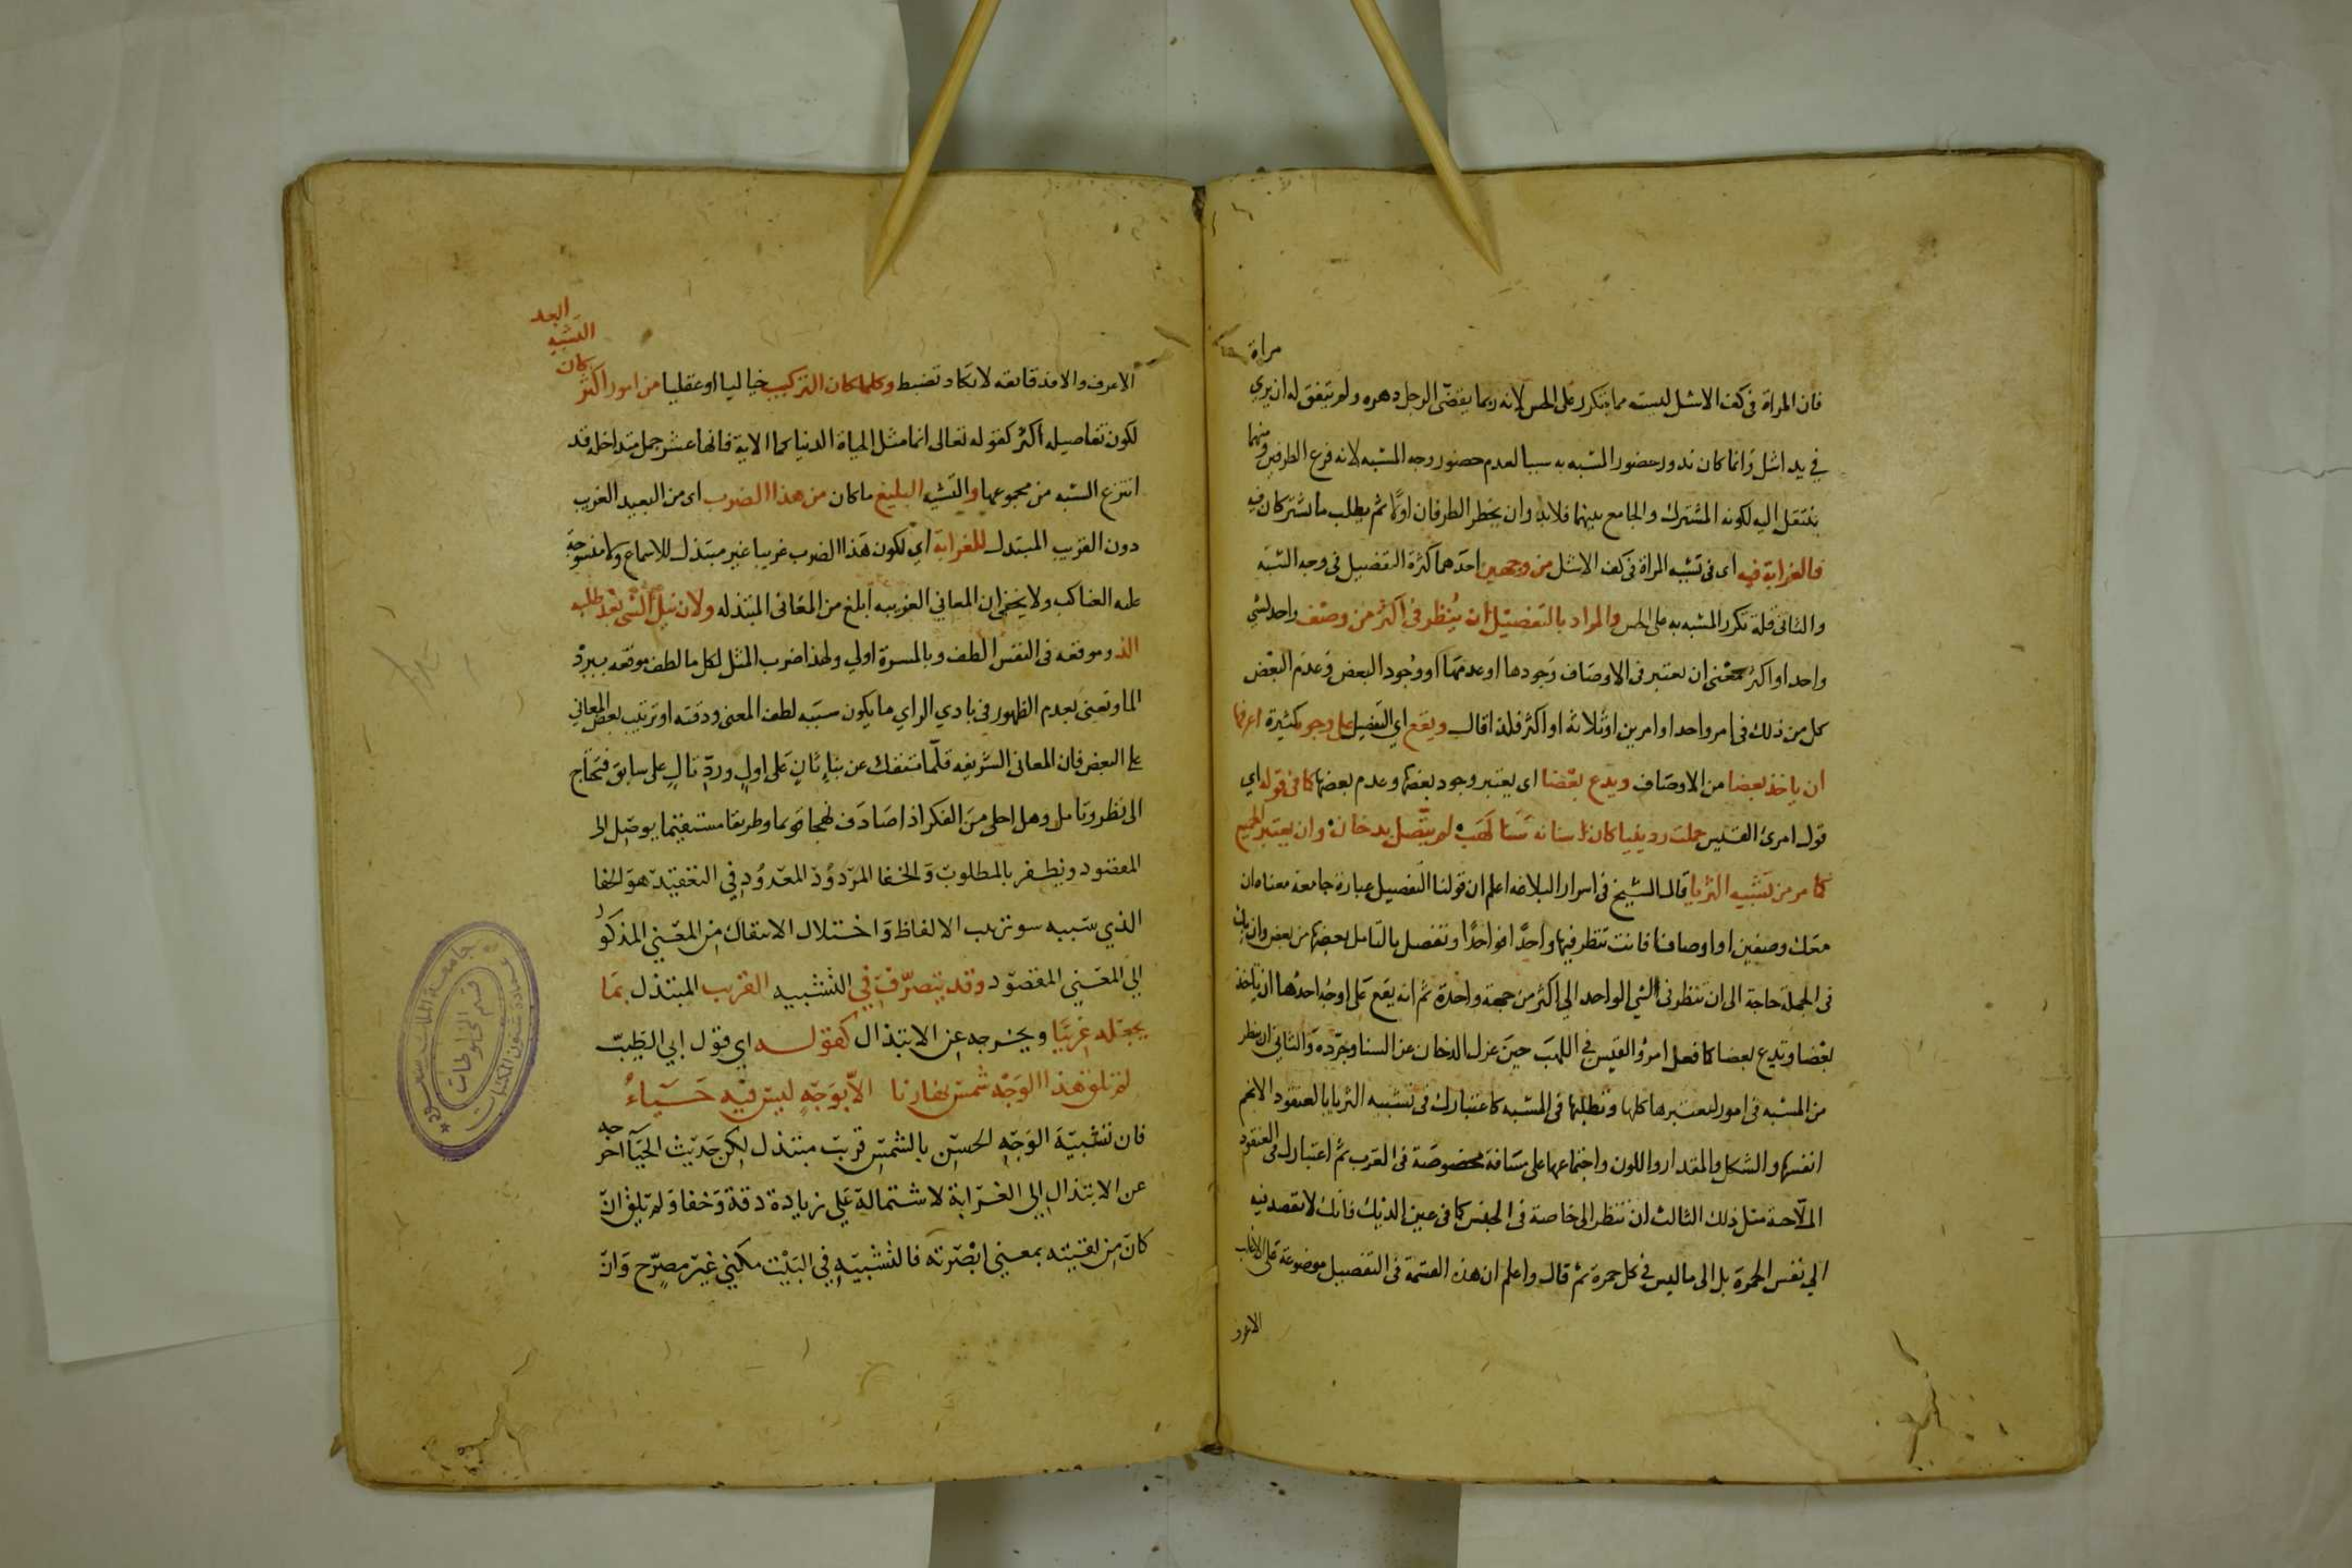 مراة
فان المراة في كف الاشل ليست مما يتكرر على الحس لانه ربما يقضى الرجل دهره ولم يتفق له ان يري
في يد اشل وانما كان ندور حضور المشبه به سببا لعدم حضور وجه المشبه لانه فرع الطرفين ومنهما
ينتقل اليه لكونه المشترك والجامع بينهما فلابد وان يخطر الطرفان اولا ثم يطلب ما يشتركان فيه
فالغرابة فيه اى فى تشبيه المراة فى كف الاشل من وجهين احدهما كثرة التفصيل فى وجه الشبه
والثانى قلة تكرر المشبه به على الحس والمراد بالتفصيل ان ينظر في اكثر من وصف واحد لشي
واحد او اكثر بمعنى ان يعتبر فى الاوصاف وجودها او عدمها او وجود البعض وعدم البعض
كل من ذلك فى امر واحد او امرين او ثلاثة او اكثر فلذا قال ويقع اي التفصيل على وجوه كثيرة اعرفها
ان ياخذ بعضا من الاوصاف ويدع بعضا اى يعتبر وجود بعضها وعدم بعضها كما فى قوله اي
قول امرئ القيس حملت ردينيا كان سنانه سنا لهب لم يتصل بدخان وان يعتبر الجميع
كما مر من تشبيه الثريا قال الشيخ فى اسرار البلاغه اعلم ان قولنا التفصيل عبارة جامعة معناه ان
معك وصفين او اوصافا فانت تنظر فيها واحدا فواحدا وتفصل بالتامل بعضها من بعض وان بك
فى الجملة حاجة الى ان تنظر فى الشي الواحد الي اكثر من جهة واحدة ثم انه يقع على اوجه احدها ان ياخذ
بعضا وتدع بعضا كما فعل امرؤ القيس في اللهب حين عزل الدخان عن السنا وجرده والثاني ان ينظر
من المشبه فى امور لتعتبرها كلها وتطلبها فى المشبه كاعتبارك فى تشبيه الثريا بالعنقود الانجم
انفسها والشكل والمقدار واللون واجتماعها على مسافة مخصوصة فى القرب ثم اعتبارك فى العنقود
الملاحية مثل ذلك الثالث ان تنظر الى خاصة فى الجنس كما فى عين الديك فانك لا تقصد فيه
الي نفس الحمرة بل الى ما ليس في كل حمرة ثم قال واعلم ان هذه القسمة فى التفصيل موضوعة على الاغلب
الاعرف
البعد
التشبيه
كان
الاعرف والا فدقائقه لا تكاد تضبط وكلما كان التركيب خياليا او عقليا من امور اكثر
لكون تفاصيله اكثر كقوله تعالى انما مثل الحياة الدنيا كما الاية فانها عشر جمل متداخله قد
انتزع الشبه من مجموعها والتشبيه البليغ ما كان من هذا الضرب اى من البعيد الغريب
دون القريب المبتذل للغرابة اي لكون هذا الضرب غريبا غير مبتذل للاسماع ولا منسوجة
عليه العناكب ولا يخفى ان المعاني الغريبه ابلغ من المعانى المبتذله ولان نيل الشي بعد طلبه
الذ وموقعه فى النفس الطف وبالمسرة اولي ولهذا ضرب المثل لكل ما لطف موقعه ببرد
الما ونعنى بعدم الظهور في بادي الراي ما يكون سببه لطف المعنى ودقته او ترتيب بعض المعاني
على البعض فان المعانى الشريفه قلما تنفك عن بناء ثان على اول ورد تال على سابق فتحتاج
الى نظر وتامل وهل احلى من الفكر اذا صادف نهجا قويما وطريقا مستقيما يوصل الى
المقصود ويظفر بالمطلوب والخفا المردود المعدود في التعقيد هو الخفا
الذي سببه سو ترتيب الالفاظ واختلال الانتقال من المعني المذكور
الي المعني المقصود وقد يتصرف في التشبيه القريب المبتذل بما
يجعله غريبا ويخرجه عن الابتذال كقوله اي قول ابي الطيب
لم تلق هذا الوجه شمس نهارنا الا بوجه ليس فيه حياء
فان تشبيه الوجه الحسن بالشمس قريب مبتذل لكن حديث الحيا اخرجه
عن الابتذال الي الغرابة لاشتماله علي زيادة دقة وخفا ولم تلق ان
كان من لقيته بمعني ابصرته فالتشبيه في البيت مكني غير مصرح وان
جامعة الملك سعود
عمادة شئون المكتبات
قسم المخطوطات